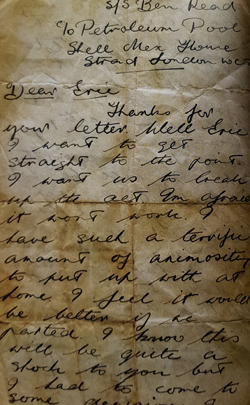 S/S Ben Read
C/o Petroleum Pool
Shell Mex House
Strad London WC2
Dear Eric
Thanks for
your letter Well Eric
I want to get
straight to the point
I want us to break
up the act Im afraid
it wont work. I
have such a terrific
amount of animosity
to put up with at
home I feel it would
be better if we
parted. I know this
will be quite a
shock to you but
I had to come to
some decision I